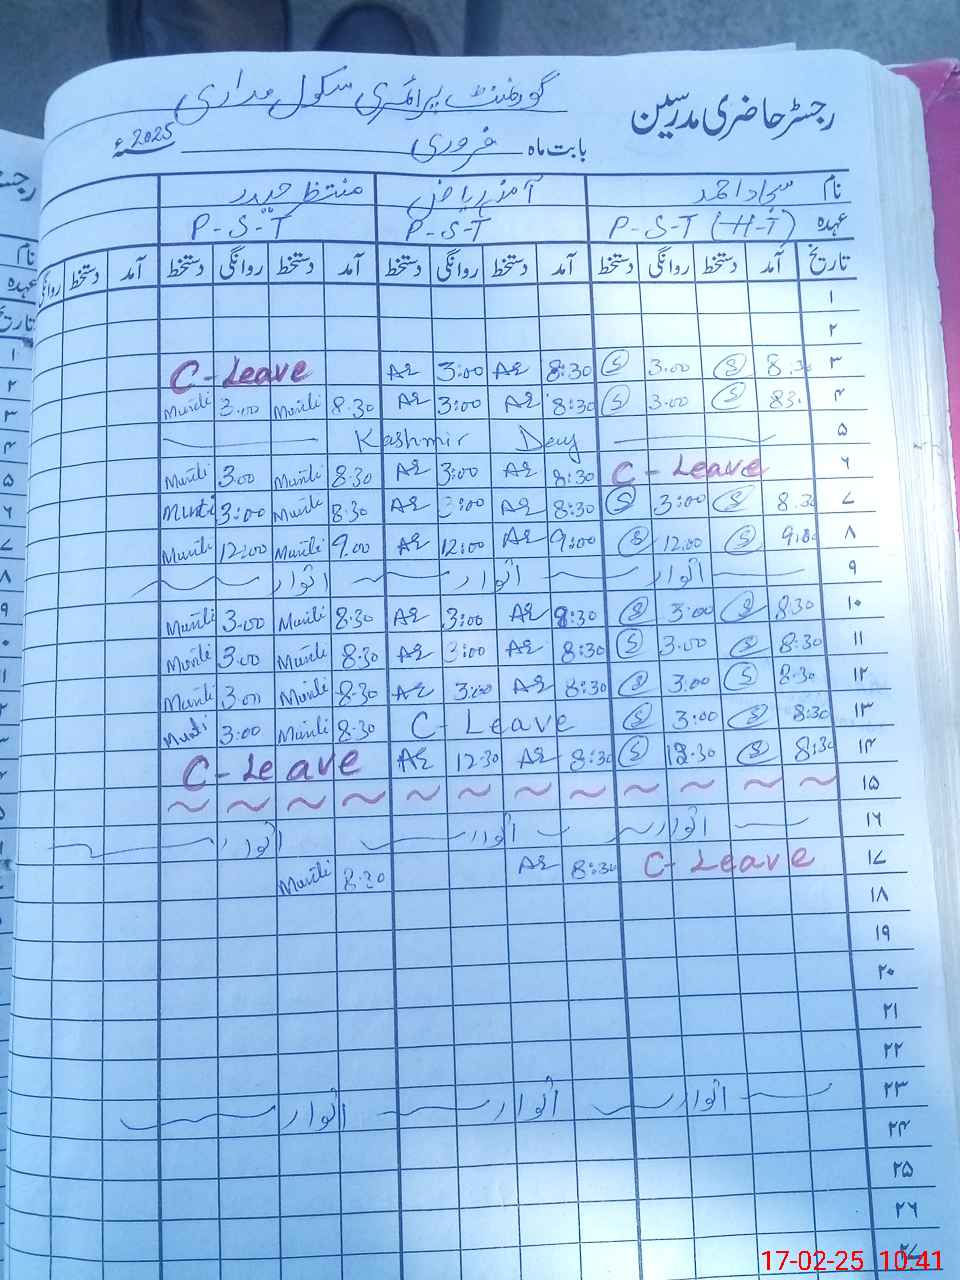 رجسٹر حاضری مدرسین
گورنمنٹ پرائمری سکول مداری
بابت ماہ فروری 2025ء
نام سجاد احمد آمنہ ریاض منتظر حیدر
عہدہ P-S-T (H-T) P-S-T P-S-T
تاریخ آمد دستخط روانگی دستخط آمد دستخط روانگی دستخط آمد دستخط روانگی دستخط آمد دستخط روانگی
۱
۲
C-Leave AR 3:00 AR 8:30 S 3.00 S 8.30 ۳
Munti 3.00 Munti 8.30 AR 3:00 AR 8:30 S 3.00 S 830 ۴
Kashmir Day ۵
Munti 3.00 Munti 8.30 AR 3:00 AR 8:30 C-Leave ۶
Munti 3:00 Munti 8.30 AR 3:00 AR 8:30 S 3:00 S 8.30 ۷
Munti 12:00 Munti 9.00 AR 12:00 AR 9:00 S 12.00 S ۸
اتوار اتوار اتوار ۹
Munti 3.00 Munti 8.30 AR 3:00 AR 8:30 S 3:00 S 8.30 ۱۰
Munti 3.00 Munti 8.30 AR 3:00 AR 8:30 S 3.00 S 8:30 ۱۱
Munti 3.00 Munti 8.30 AR 3:00 AR 8:30 S 3.00 S 8.30 ۱۲
Munti 3:00 Munti 8.30 C-Leave S 3:00 S 8:30 ۱۳
C-Leave AR 12.30 AR 8:30 S 12.30 S 8:30 ۱۴
۱۵
اتوار اتوار اتوار ۱۶
Munti 8.30 AR 8:30 C-Leave ۱۷
۱۸
۱۹
۲۰
۲۱
۲۲
اتوار اتوار اتوار ۲۳
۲۴
۲۵
۲۶
۲۷
17-02-25 10:41